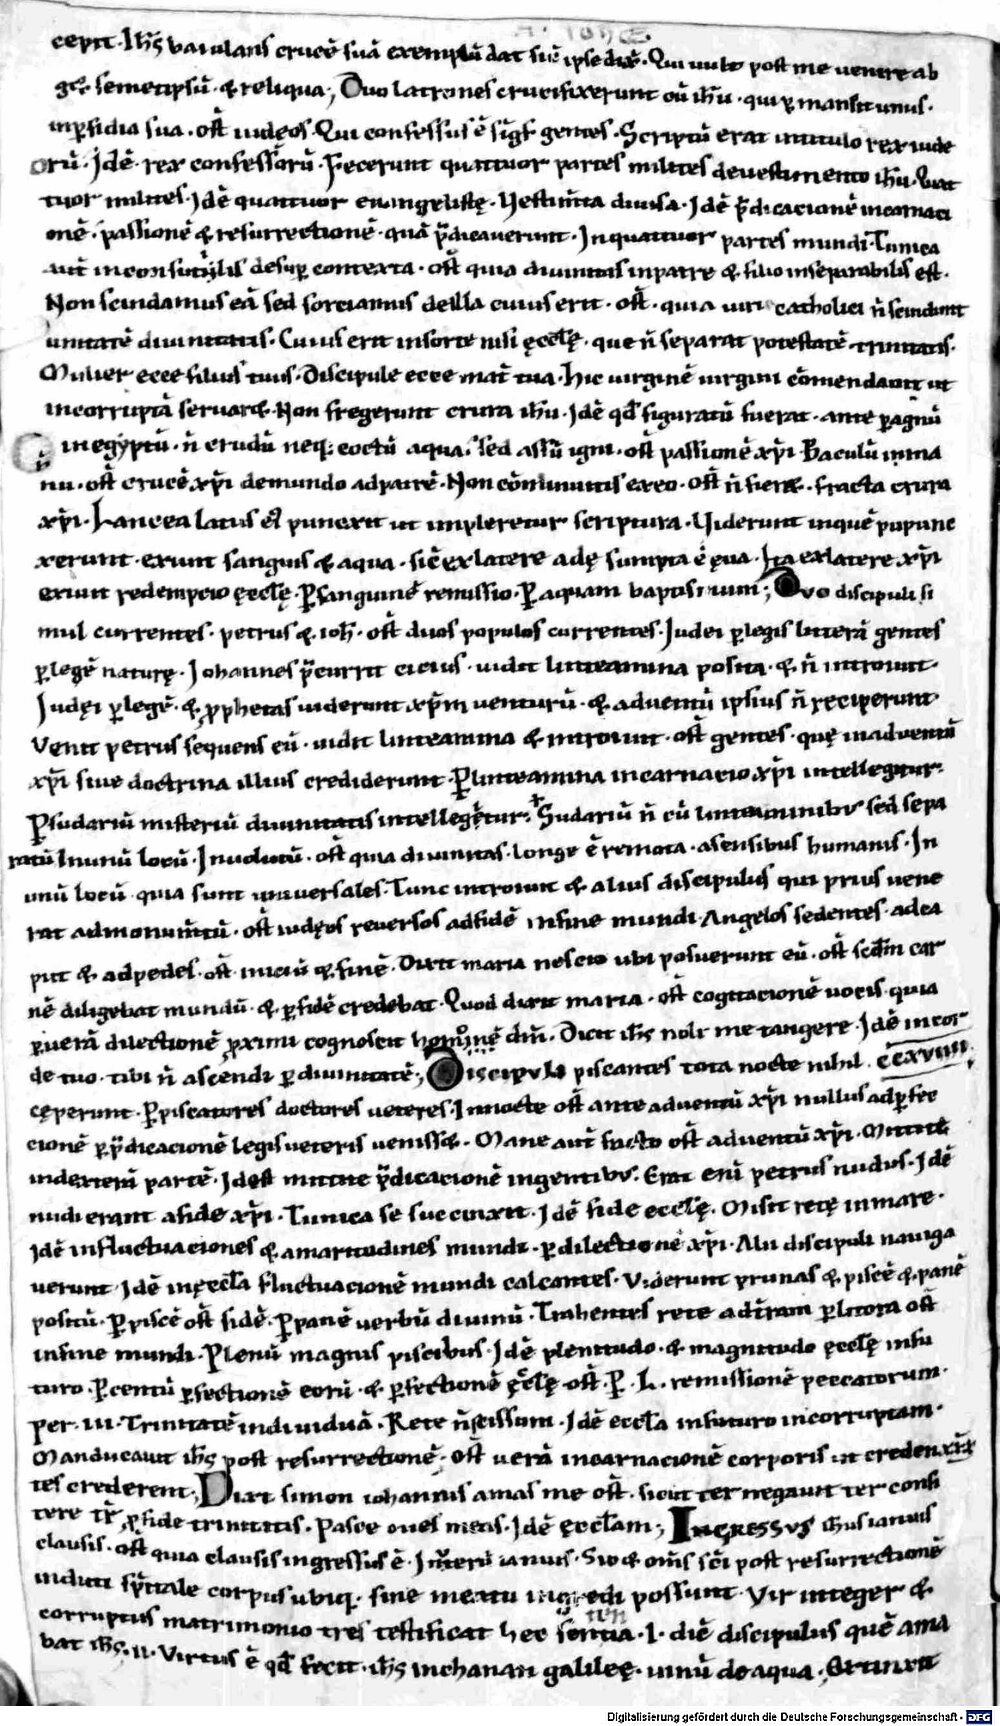 cepit · Ihs baiulans crucē suā exemplū dat sic̄ ipse dix̄ · Qui uult post me uenire ab
semetipsū · & reliqua ; Duo latrones crucifixerunt cū ihū · qui ꝑmansit unus ·
inꝑfidia sua · oſt̄ iudęos · Qui confessus ē sigf̄ gentes · Scriptū erat intitulo rex iude
orū · Idē · rex confessorū · Fecerunt quattuor partes milites deuestimento ihū · Quat
tuor milites · Idē quattuor euangelistę · Uestim̄ta diuisa · Idē p̄dicacionē incarnaci
onē · passionē & resurrectionē · quā p̄dicauerunt · Inquattuor partes mundi · Tunica
aut̄ inconsutilis desuꝑ contexta · oſt̄ quia diuinitas inpatre & filio inseparabilis est ·
Non scindamus eā sed sorciamus deilla cuius erit · oſt̄ · quia uiri catholici n̄ scindunt
unitatē diuinitatis · Cuius erit insorte nisi ęccłę · que n̄ separat potestatē trinitatis ·
Mulier ecce filius tuus · Discipule ecce mat̄ tua · hic uirginē uirgini cōmendauit ut
incorruptā seruar& · Non fregerunt crura ihū · Idē qđ figuratū fuerat · ante ꝑagnū
in egyptū · n̄ crudū neq; coctū aqua · sed assū igni · oſt̄ passionē xp̄i · Baculū inma
nu · oſt̄ crucē xp̄i demundo adpatrē · Non cōminuitis exeo · oſt̄ n̄ fier& · fracta crura
xp̄i · Lancea latus ei punxit ut impleretur scriptura · Uiderunt inquē pupunc
xerunt · exiut sanguis & aqua · sic̄ exlatere adę sumpta ē ęua · Ita exlatere xp̄i
exiuit redempcio ęccłę · Ꝑsanguinē remissio · Ꝑ aquam baptismum ; Duo discipuli si
mul currentes · petrus & ioh̄ · oſt̄ duos populos currentes · Iudei ꝑlegis litterā gentes
ꝑlegē naturę · Iohannes p̄currit cicius · uidit linteamina posita · & n̄ introiuit ·
Iudęi ꝑlegē · & ꝓphetas uiderunt xp̄m uenturū · & aduentū ipsius n̄ reciperunt
Venit petrus sequens eū · uidit linteamina & introiuit · oſt̄ gentes · quę inaduentū
xp̄i siue doctrina illius crediderunt · Ꝑlinteamina incarnacio xp̄i intellegitur ·
Ꝑsudariū misteriū diuinitatis intellegetur · Sudariū n̄ cū linteaminibus sed sepa
ratū Inunū locū · Inuolutū · oſt̄ quia diuinitas · longe ē remota · asensibus humanis · In
unū locū · quia sunt uniuersales · Tunc introiuit & alius discipulus qui prius uene
rat admonum̄tū · oſt̄ iudęos reuersos adfidē infine mundi · Angelos sedentes · adca
put & adpedes · oſt̄ iniciū & finē · Dixit maria nescio ubi posuerunt eū · oſt̄ scđm car
nē diligebat mundū · & ꝑfidē credebat · Quod dixit maria · oſt̄ cogitacionē uocis · quia
ꝑuerā dilectionē ꝓximi cognoscit hominē dm̄ · Dicit ihs noli me tangere · Idē incor
de tuo · tibi n̄ ascendi ꝑdiuinitatē ; Discipuli piscantes tota nocte nihil · ccxviiii
cęperunt · Ꝑpiscatores doctores ueteres · Innocte oſt̄ ante aduentū xp̄i nullus adꝑfec
cionē ꝑp̄dicacionē legis ueteris ueniss& · Mane aut̄ facto oſt̄ aduentū xp̄i · Mittite
indexterā partē · Idest mittite p̄dicacionē ingentibus · Erat enī petrus nudus · Idē
nudi erant afide xp̄i · Tunica se succinxit · Idē fide ecclę · Misit retę inmare ·
Idē influctuaciones & amaritudines mundi · ꝑdilectionē xp̄i · Alii discipuli nauiga
uerunt · Idē inęccła fluctuacionē mundi calcantes · Viderunt prunas & piscē & panē
positū · Ꝑpiscē oſt̄ fidē · Ꝑpanē uerbū diuinū · Trahentes rete adt̄ram ꝑlitora oſt̄
infine mundi · Plenū magnis piscibus · Idē plenitudo · & magnitudo ęccłę infu
turo · Ꝑcentū ꝑfectionē eorū · & ꝑfectionē ęccłę · oſt̄ Ꝑ · L · remissionē peccatorum ·
per · III · Trinitatē indiuiduā · Rete n̄ scissum · Idē ęccła infuturo incorruptam ·
Manducauit ihs post resurrectionē · oſt̄ uerā incarnacionē corporis ut creden
tes crederent ; Dixit simon iohannis amas me oſt̄ · sicut ter negauit ter confi
tere ꝓ fide trinitatis · Pasce oues meas · Idē ęccłam ; Ingressus ihesus ianuis
clausis · oſt̄ quia clausis ingressus ē · ianuis · Sic & om̄s sc̄i post resurrectionē
induti sp̄itale corpus ubiq; · sine metu ingredi possunt · Vir integer &
corruptus matrimonio tres testificat hec sententia · I · diē discipulus quē ama
bat ihs · II · Virtus ē qđ fecit · ihs inchanan galileę · uinū de aqua ·
Digitalisierung gefördert durch die Deutsche Forschungsgemeinschaft · DFG